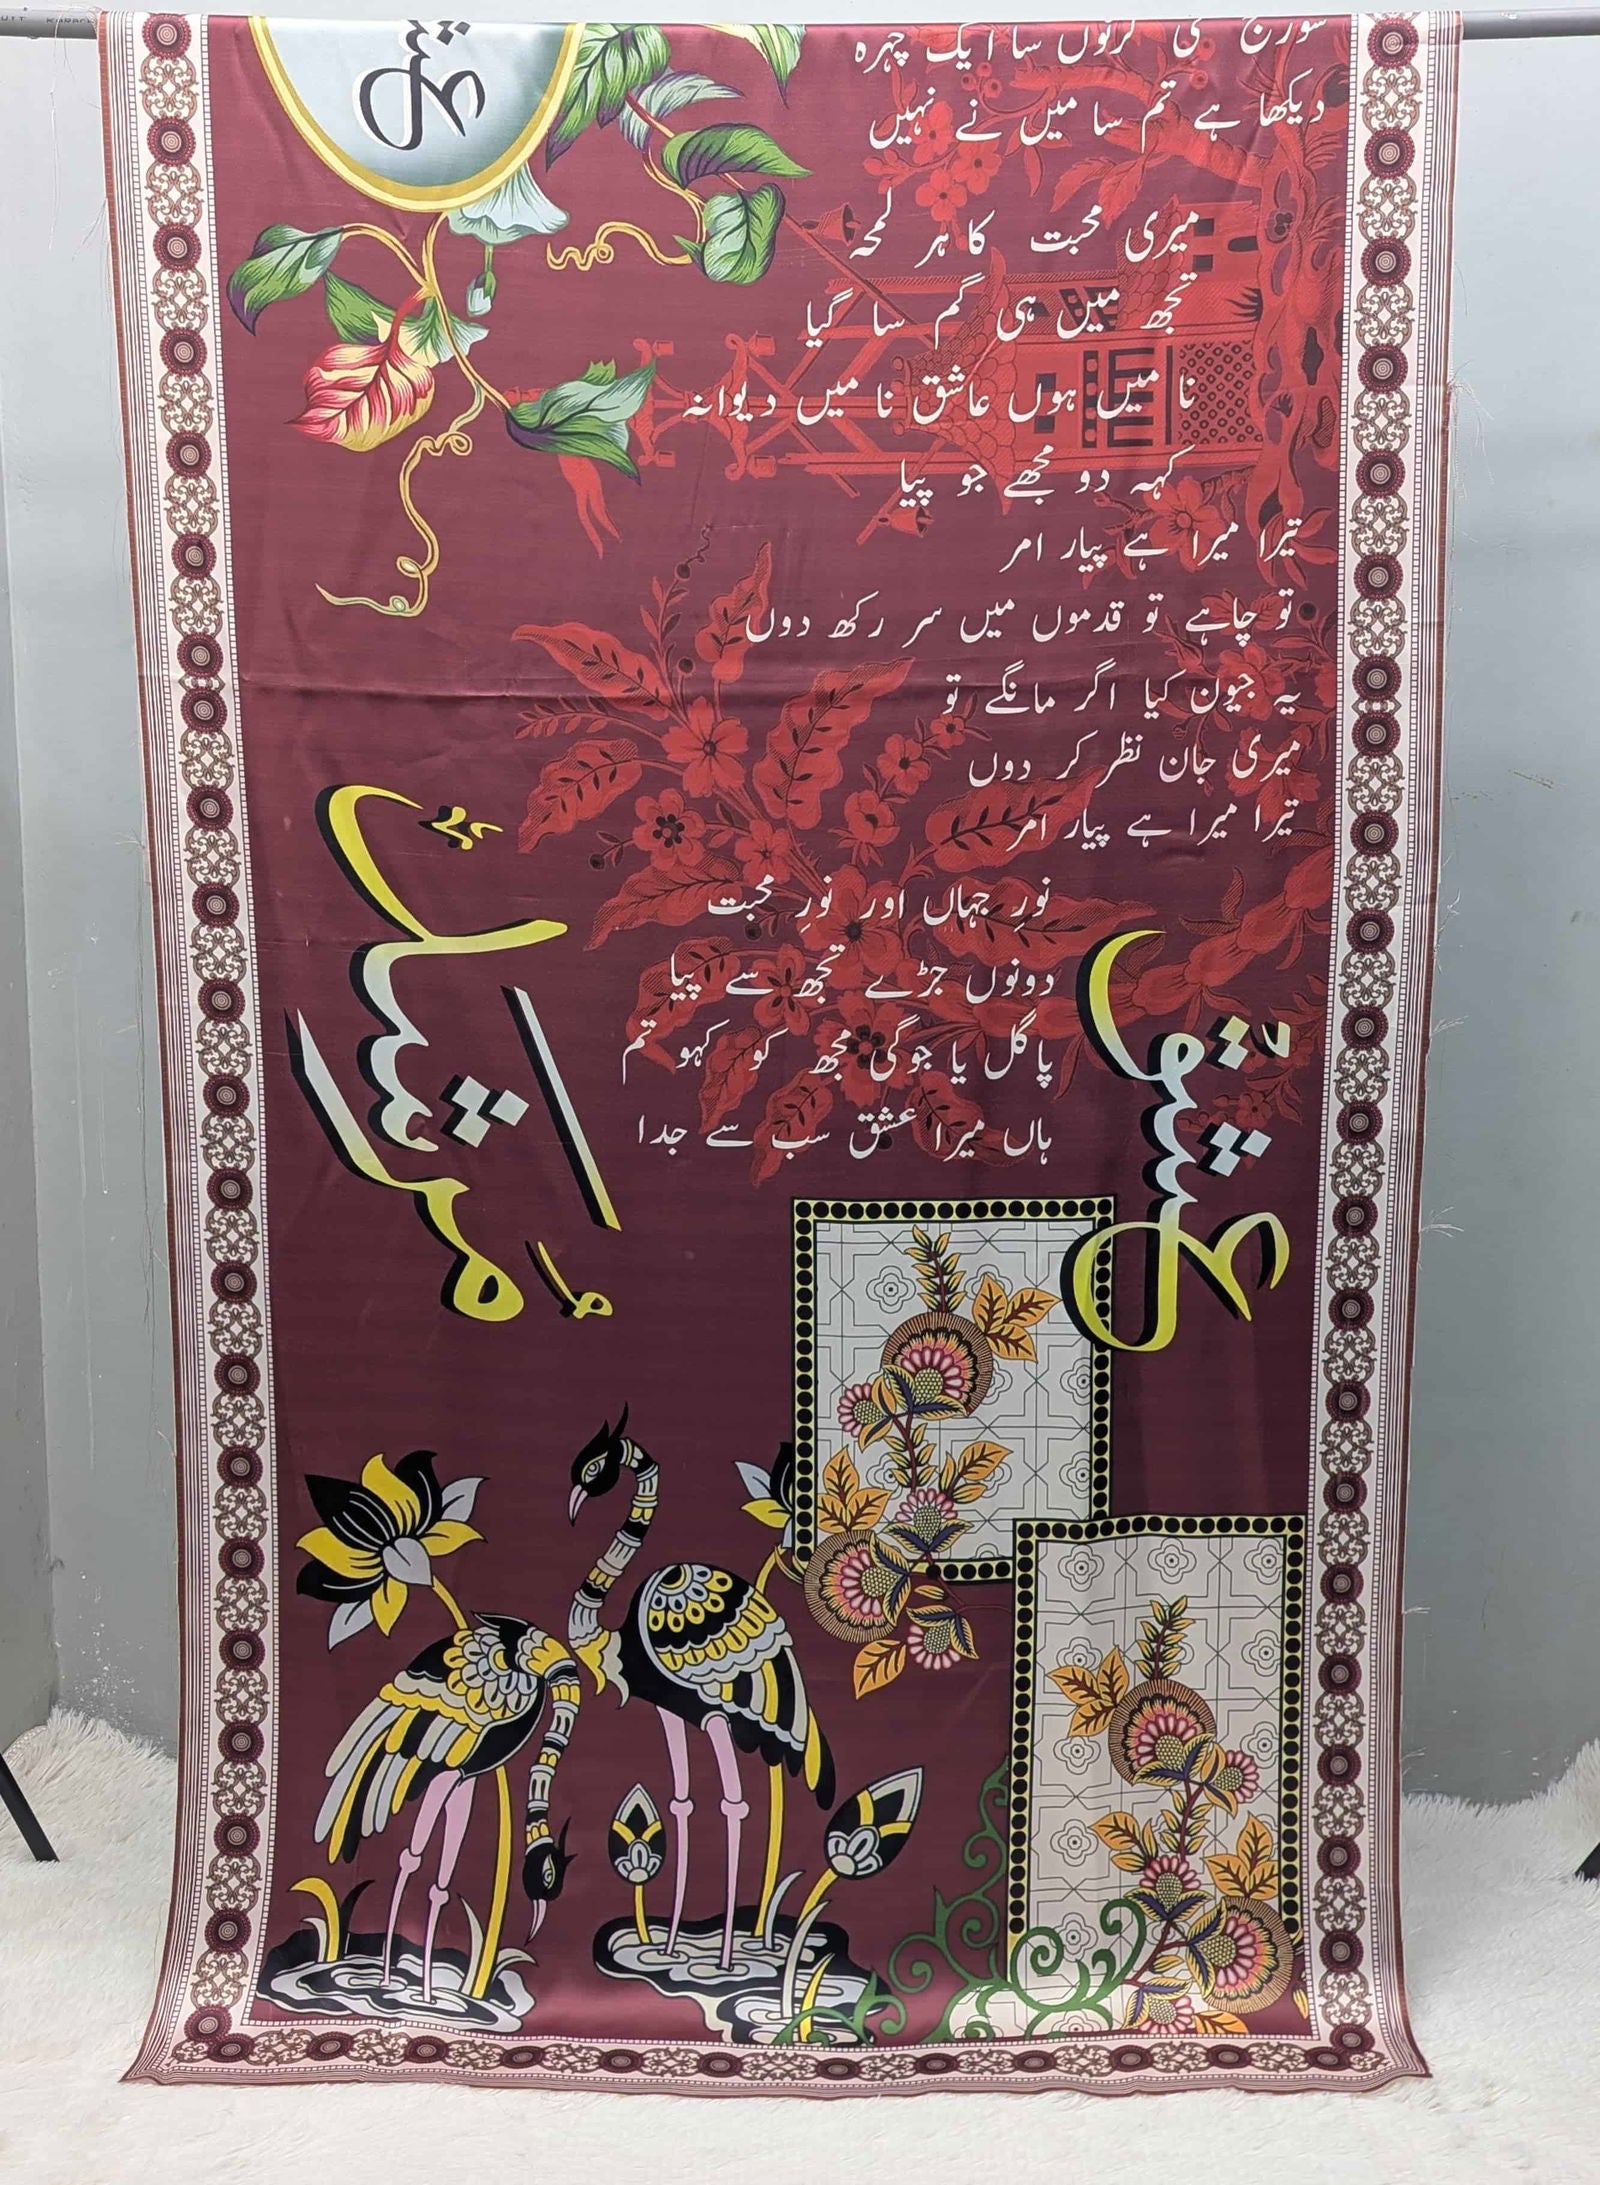 سورج کی کرنوں سا ایک چہرہ
دیکھا ہے تم سا میں نے نہیں
میری محبت کا ہر لمحہ
تجھ میں ہی گم سا گیا
نا میں ہوں عاشق نا میں دیوانہ
کہہ دو مجھے جو پیا
تیرا میرا ہے پیار امر
تو چاہے تو قدموں میں سر رکھ دوں
یہ جیون کیا اگر مانگے تو
میری جان نظر کر دوں
تیرا میرا ہے پیار امر
نورِ جہاں اور نورِ محبت
دونوں جڑے تجھ سے پیا
پاگل یا جوگی مجھ کو کہو تم
ہاں میرا عشق سب سے جدا
عشق
مُرشد